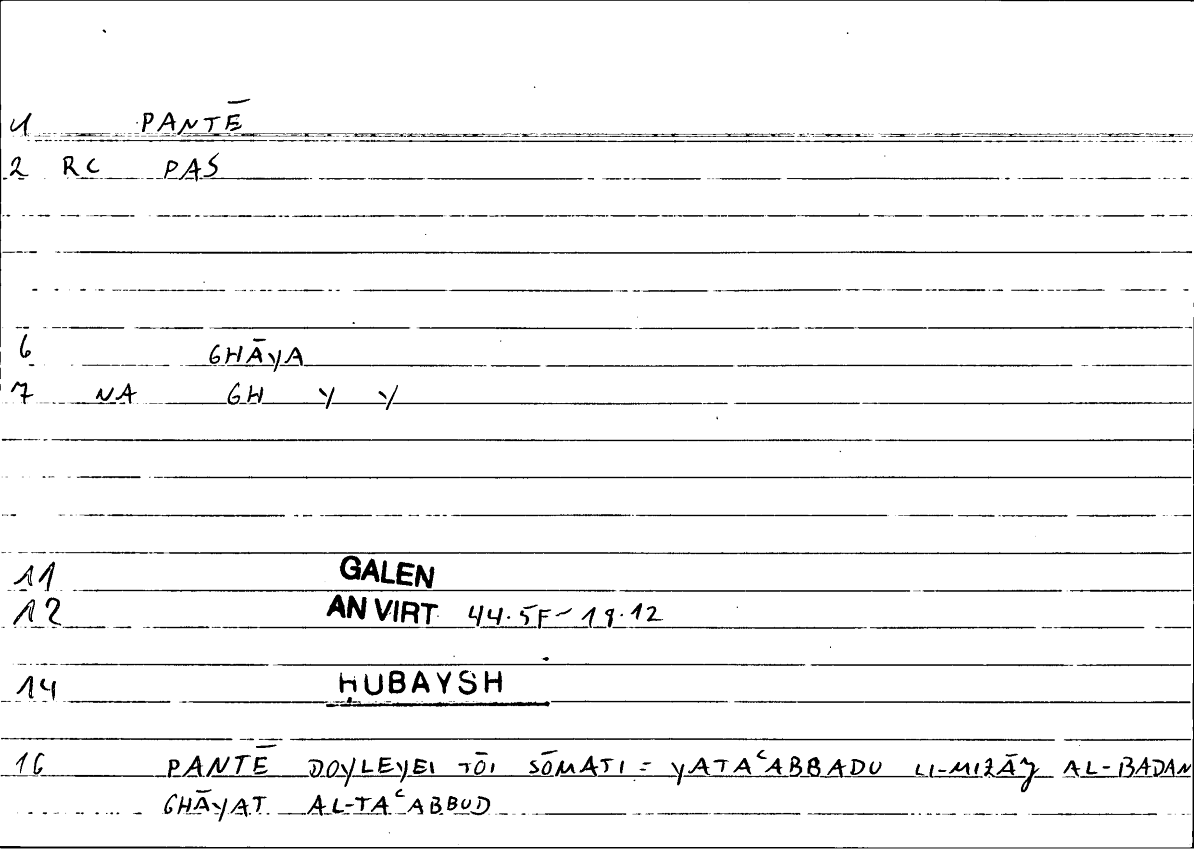 1 PANTĒ
2 RC PAS
6 GHĀYA
7 NA GH Y Y
11 GALEN
12 AN VIRT 44.5F~19.12
14 ḤUBAYSH
16 PANTĒ DOYLEYEI TŌI SŌMATI = YATAʿABBADU LI-MIZĀǦ AL-BADAN
GHĀYAT AL-TAʿABBUD